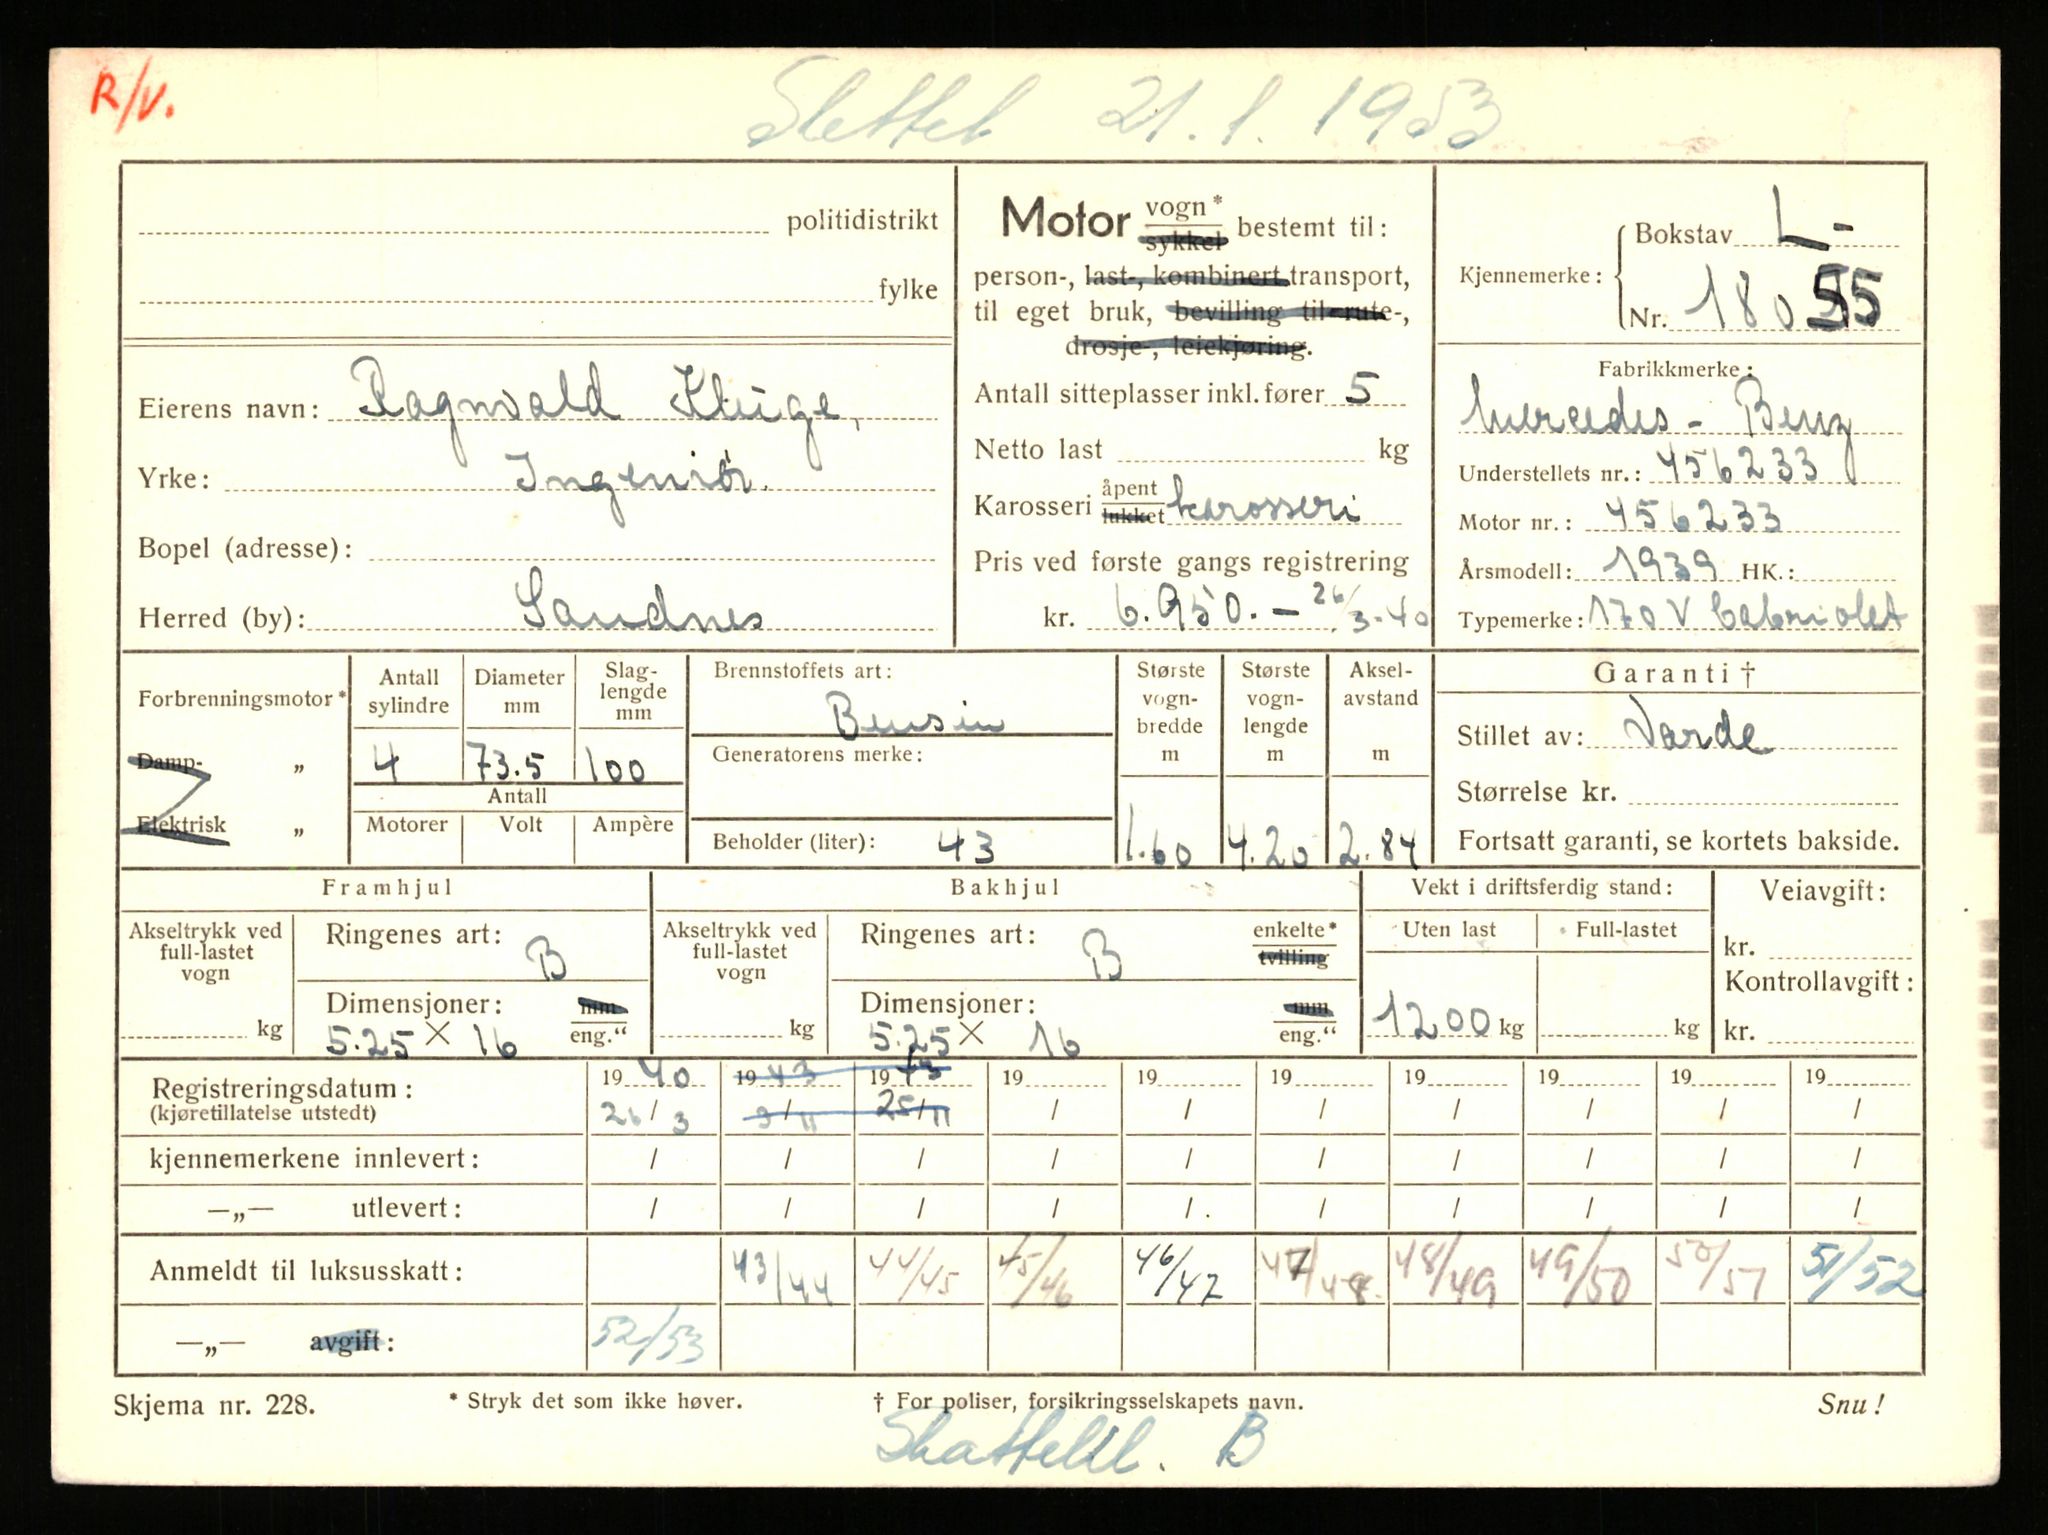 R/V.
Slettet 21.1.1953
politidistrikt
fylke
Eierens navn: Ragnvald Kluge,
Yrke: Ingeniør.
Bopel (adresse):
Herred (by): Sandnes
Motor vogn* sykkel bestemt til:
person-, last-, kombinert transport,
til eget bruk, bevilling til rute-,
drosje-, leiekjøring.
Antall sitteplasser inkl. fører 5
Netto last kg
Karosseri åpent lukket karosseri
Pris ved første gangs registrering
kr. 6.950.- 26/3-40
Kjennemerke: Bokstav L-
Nr. 18055
Fabrikkmerke:
Mercedes - Benz
Understellets nr.: 456233
Motor nr.: 456233
Årsmodell: 1939 HK.:
Typemerke: 170 V Cabriolet
Forbrenningsmotor*
Damp- „
Elektrisk „
Antall sylindre Diameter mm Slag-lengde mm
4 73.5 100
Antall
Motorer Volt Ampère
Brennstoffets art:
Bensin
Generatorens merke:
Beholder (liter): 43
Største vogn-bredde m Største vogn-lengde m Aksel-avstand m
1.60 4.20 2.84
Garanti †
Stillet av: Varde
Størrelse kr.
Fortsatt garanti, se kortets bakside.
Framhjul
Akseltrykk ved full-lastet vogn
kg
Ringenes art: B
Dimensjoner: mm
5.25 x 16 eng."
Bakhjul
Akseltrykk ved full-lastet vogn
kg
Ringenes art: B enkelte* tvilling
Dimensjoner: mm
5.25 x 16 eng."
Vekt i driftsferdig stand:
Uten last Full-lastet
1200 kg kg
Veiavgift:
kr.
Kontrollavgift:
kr.
Registreringsdatum: 19 40 19 43 19 43 19 19 19 19 19 19 19
(kjøretillatelse utstedt) 26/3 9/11 25/11 / / / / / / /
kjennemerkene innlevert: / / / / / / / / / /
—„— utlevert: / / / / / / / / / /
Anmeldt til luksusskatt: 43/44 44/45 45/46 46/47 47/48 48/49 49/50 50/51 51/52
—„— avgift: 52/53
Skjema nr. 228. * Stryk det som ikke høver. † For poliser, forsikringsselskapets navn. Snu!
B